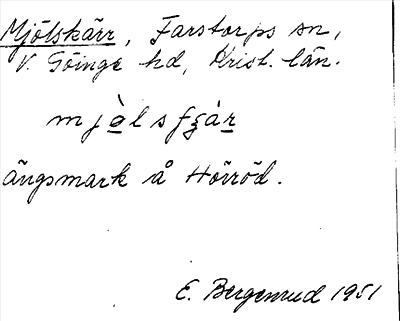 Mjölskärr, Farstorps sn,
V. Göinge hd, Krist. län.
mjàlsfzàr
ängsmark å Hörröd.
E. Bergenrud 1951